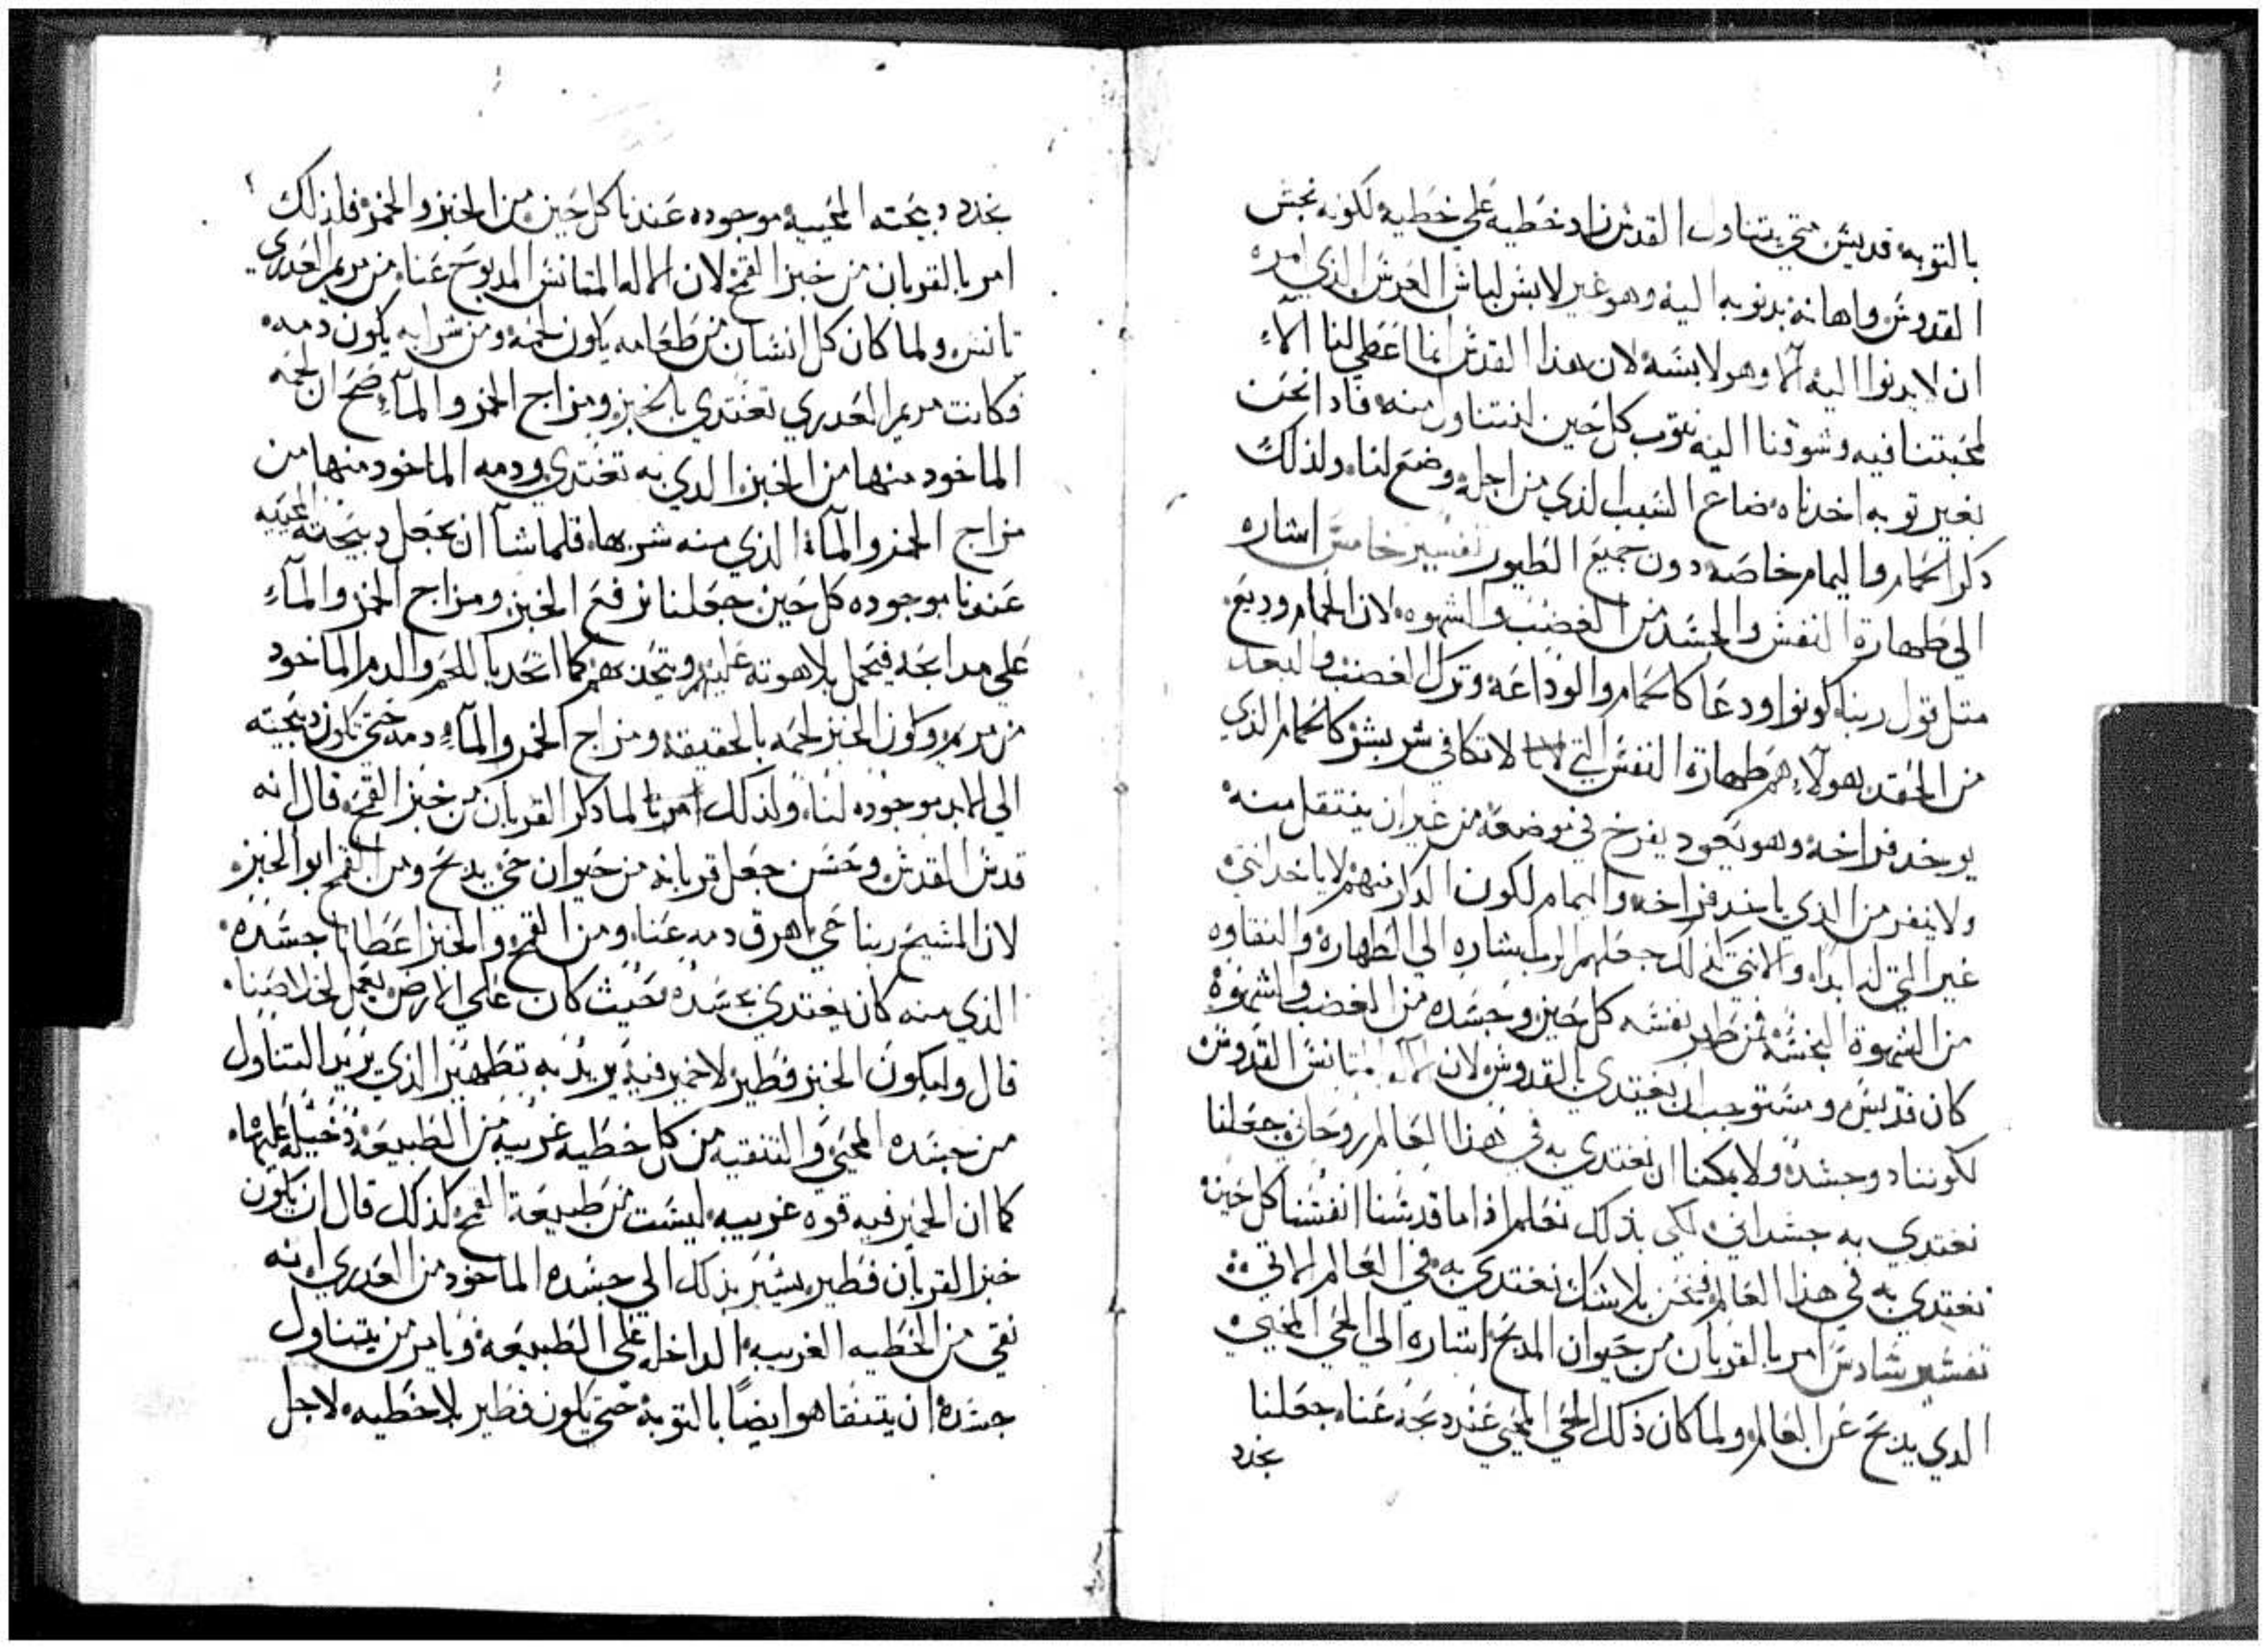 بالتوبه قديس متي يتناول القدس زاد خطيه علي خطيه لكونه نجس
القدوس واهانه بدنوبه اليه وهو غير لابس لباس العرس الذي امره
ان لا يدنوا اليه الا وهو لابسه لان هذا القدس انما اعطي لنا الا
لمحبتنا فيه وشوقنا اليه نتوب كل حين لنتناول منه فادا نحن
بغير توبه اخدناه ضاع السبب الذي من اجله وضع لنا ولذلك
ذكر الحمام واليمام خاصه دون جميع الطيور تفسير خامس اشاره
الي طهارة النفس والجسد من الغضب والشهوه لان الحمام وديع
متل قول ربنا كونوا ودعا كالحمام والوداعه وترك الغضب والبعد
من الحقد هولاء هم طهارة النفس التي لا تكافي شر بشر كالحمام الذي
يوخد فراخه وهو يعود يفرخ في موضعه من غير ان ينتقل منه
ولا ينفر من الذي ياخد فراخه واليمام لكون الدكر منهم لا ياخد انتي
غير التي له ابدا والانتي كذلك جعلهم الرب اشاره الي الطهاره والنقاوه
من الشهوة النجسه فمن طهر نفسه كل حين وجسده من الغضب والشهوة
كان قديس ومستوجب ان يغتدي بالقدوس لان الاله المتانس القدوس
لكوننا دو جسد ولا يمكنا ان نغتدي به في هذا العالم روحاني جعلنا
نغتدي به جسداني لكي بذلك نعلم اذا ما قدسنا انفسنا كل حين
نغتدي به في هذا العالم فنحن بلا شك نغتدي به في العالم الاتي
تفسير سادس امر بالقربان من حيوان المدبح اشاره الي الحي المحيي
الدي يدبح عن العالم ولما كان ذلك الحي المحيي عند دبحه عنا جعلنا
نجدد
نجدد دبيحته المحييه موجوده عندنا كل حين من الخبز والخمر فلذلك
امر بالقربان من خبز القمح لان الاله المتانس المدبوح عنا من مريم العدري
تانس ولما كان كل انسان من طعامه يكون لحمه ومن شرابه يكون دمه
فكانت مريم العدري تغتدي بالخبز ومزاج الخمر والمآء صح ان لحمه
الماخود منها من الخبز الدي به تغتدي ودمه الماخود منها من
مزاج الخمر والمآء الذي منه شربها فلما شآ ان يجعل دبيحته المحييه
عندنا موجوده كل حين جعلنا نرفع الخبز ومزاج الخمر والمآء
علي مدابحه فيحل بلاهوته عليهم ويتحد بهم كما اتحد باللحم والدم الماخود
من مريم ويكون الخبز لحمه بالحقيقه ومزاج الخمر والمآء دمه حتي تكون دبيحته
الي الابد موجوده لنا ولذلك امرنا لما دكر القربان من خبز القمح قال انه
قدس القدس وحسن جعل قربانه من حيوان حي يدبح ومن القمح ابو الخبز
لان المسيح ربنا حي اهرق دمه عنا ومن القمح والخبز اعطانا جسده
الذي منه كان يغتدي جسده حيث كان علي الارض يعمل خلاصنا
قال وليكون الخبز فطير لا خمير فيه يريد به تطهير الذي يريد التناول
من جسده المحيي والتنقيه من كل خطيه غريبه من الطبيعه دخيله عليها
كما ان الخمير فيه قوه غريبه ليست من طبيعة القمح كذلك قال ان يكون
خبز القربان فطير يشير بذلك الي جسده الماخود من العدري انه
نقي من الخطيه الغريبه الداخله علي الطبيعه ويامر من يتناول
جسده ان يتنقا هو ايضاً بالتوبه حتي يكون فطير بلا خطيه لاجل